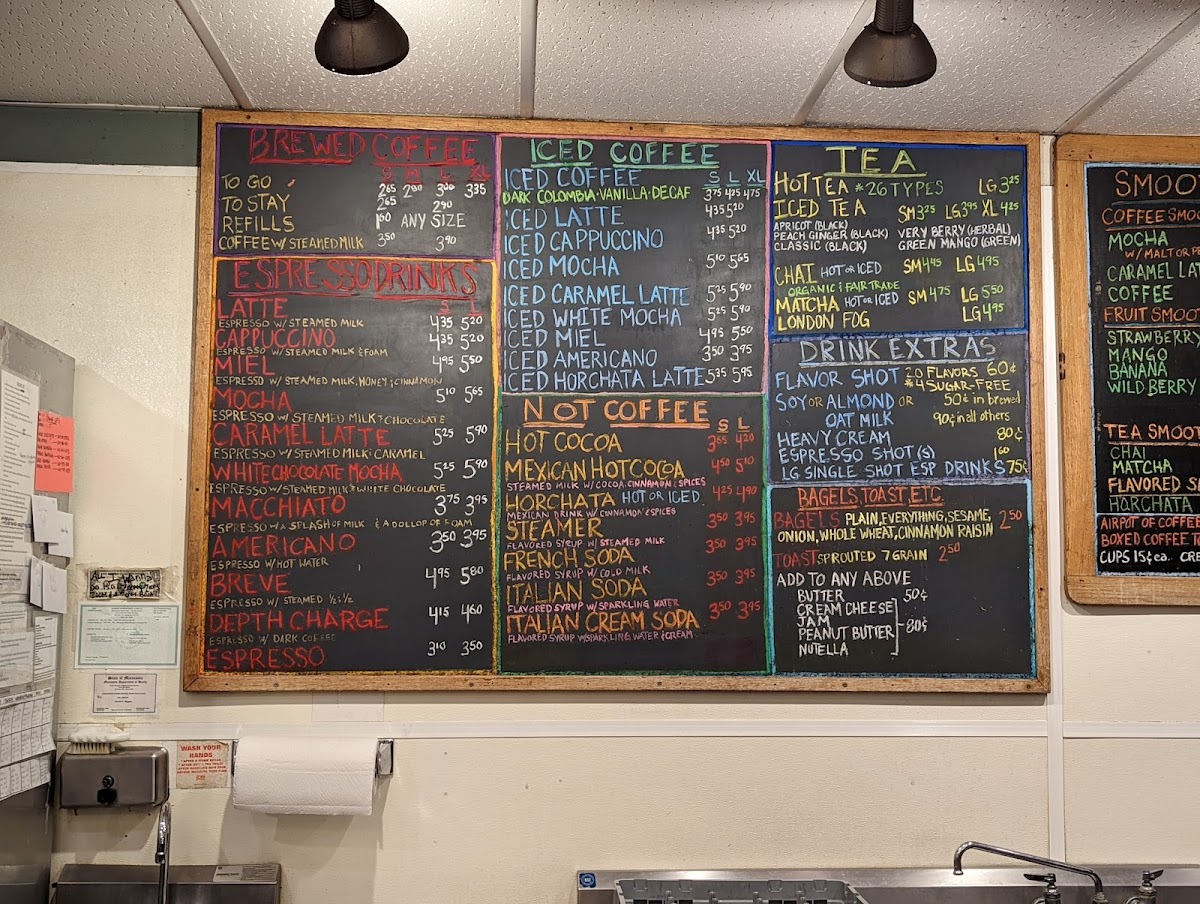 BREWED COFFEE
S M L XL
TO GO 2.65 2.80 3.00 3.35
TO STAY 2.65 2.90
REFILLS 1.60 ANY SIZE
COFFEE W/ STEAMED MILK 3.50 3.90
ESPRESSO DRINKS
S L
LATTE 4.35 5.20
ESPRESSO W/ STEAMED MILK
CAPPUCCINO 4.35 5.20
ESPRESSO W/ STEAMED MILK & FOAM
MIEL 4.95 5.50
ESPRESSO W/ STEAMED MILK, HONEY & CINNAMON
MOCHA 5.10 5.65
ESPRESSO W/ STEAMED MILK & CHOCOLATE
CARAMEL LATTE 5.25 5.90
ESPRESSO W/ STEAMED MILK & CARAMEL
WHITE CHOCOLATE MOCHA 5.25 5.90
ESPRESSO W/ STEAMED MILK & WHITE CHOCOLATE
MACCHIATO 3.75 3.95
ESPRESSO W/ A SPLASH OF MILK & A DOLLOP OF FOAM
AMERICANO 3.50 3.95
ESPRESSO W/ HOT WATER
BREVE 4.95 5.80
ESPRESSO W/ STEAMED ½ & ½
DEPTH CHARGE 4.15 4.60
ESPRESSO W/ DARK COFFEE
ESPRESSO 3.10 3.50
ICED COFFEE
ICED COFFEE S L XL
DARK COLOMBIA · VANILLA · DECAF 3.75 4.25 4.75
ICED LATTE 4.35 5.20
ICED CAPPUCCINO 4.35 5.20
ICED MOCHA 5.10 5.65
ICED CARAMEL LATTE 5.25 5.90
ICED WHITE MOCHA 5.25 5.90
ICED MIEL 4.95 5.50
ICED AMERICANO 3.50 3.95
ICED HORCHATA LATTE 5.35 5.95
NOT COFFEE S L
HOT COCOA 3.65 4.20
MEXICAN HOT COCOA 4.50 5.10
STEAMED MILK W/ COCOA, CINNAMON & SPICES
HORCHATA HOT OR ICED 4.25 4.90
MEXICAN DRINK W/ CINNAMON & SPICES
STEAMER 3.50 3.95
FLAVORED SYRUP W/ STEAMED MILK
FRENCH SODA 3.50 3.95
FLAVORED SYRUP W/ COLD MILK
ITALIAN SODA 3.50 3.95
FLAVORED SYRUP W/ SPARKLING WATER
ITALIAN CREAM SODA 3.50 3.95
FLAVORED SYRUP W/ SPARKLING WATER & CREAM
TEA
HOT TEA * 26 TYPES LG 3.25
ICED TEA SM 3.25 LG 3.95 XL 4.25
APRICOT (BLACK)
PEACH GINGER (BLACK) VERY BERRY (HERBAL)
CLASSIC (BLACK) GREEN MANGO (GREEN)
CHAI HOT OR ICED SM 4.45 LG 4.95
ORGANIC & FAIR TRADE
MATCHA HOT OR ICED SM 4.75 LG 5.50
LONDON FOG LG 4.95
DRINK EXTRAS
FLAVOR SHOT 20 FLAVORS 60¢
*4 SUGAR-FREE
SOY OR ALMOND OR 50¢ in brewed
OAT MILK 90¢ in all others
HEAVY CREAM 80¢
ESPRESSO SHOT(S) 1.60
LG SINGLE SHOT ESP DRINKS 75¢
BAGELS, TOAST, ETC.
BAGELS PLAIN, EVERYTHING, SESAME, 2.50
ONION, WHOLE WHEAT, CINNAMON RAISIN
TOAST SPROUTED 7 GRAIN 2.50
ADD TO ANY ABOVE
BUTTER 50¢
CREAM CHEESE
JAM
PEANUT BUTTER 80¢
NUTELLA
SMOOT
COFFEE SMOO
MOCHA
W/ MALT OR PE
CARAMEL LAT
COFFEE
FRUIT SMOO
STRAWBERRY
MANGO
BANANA
WILD BERRY
TEA SMOOT
CHAI
MATCHA
FLAVORED S
HORCHATA
AIRPOT OF COFFEE
BOXED COFFEE TO
CUPS 15¢ ea. CRE
State of Minnesota
WASH YOUR
HANDS